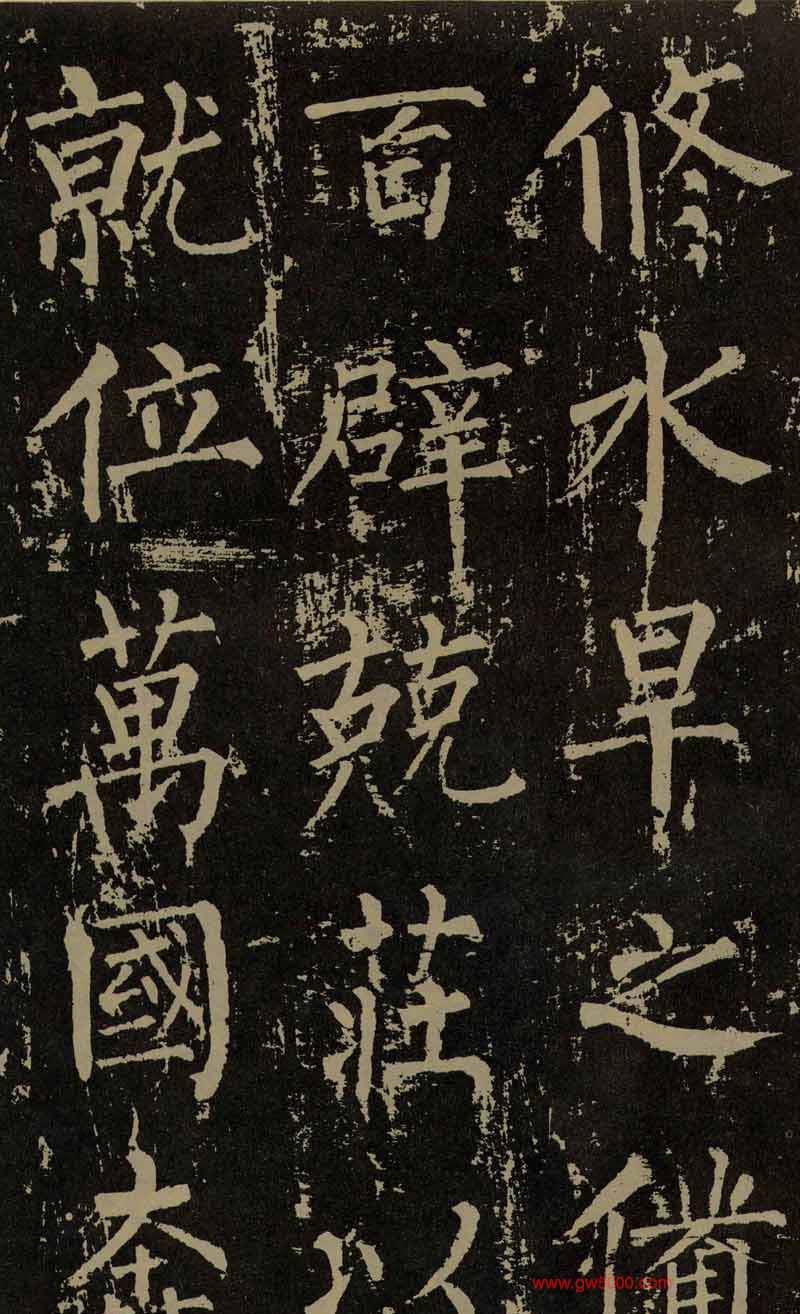 修水旱之備
百辟兢莊以
就位萬國奔
www.gw5000.com